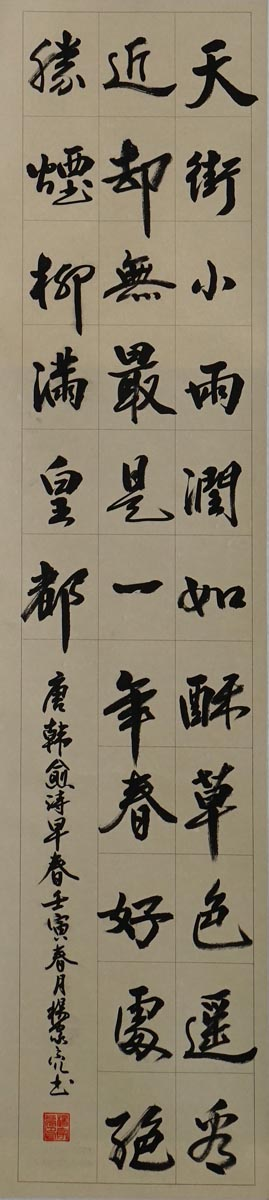 天街小雨潤如酥草色遥看
近却無最是一年春好處絶
勝煙柳滿皇都
唐韓愈诗早春壬寅春月楊景亮书